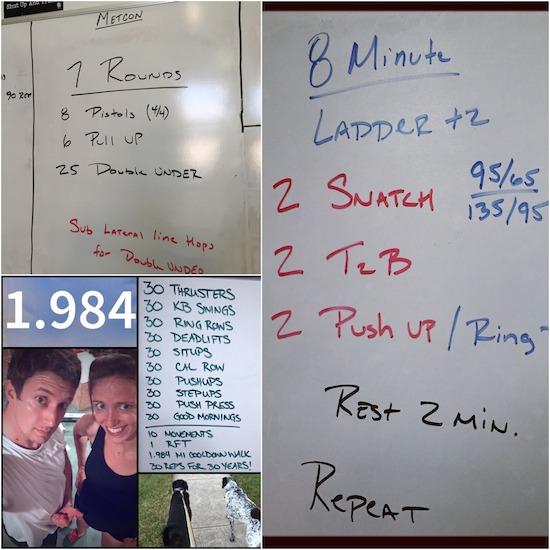 Shut Up And Train
METCON
7 ROUNDS
90 REM
8 Pistols (4/4)
6 Pull UP
25 Double UNDER
Sub Lateral line Hops
for Double UNDER
8 Minute
LADDER +2
2 SNATCH 95/65
135/95
2 T2B
2 Push up / Ring
REST 2 MIN.
REPEAT
1.984
30 THRUSTERS
30 KB SWINGS
30 RING ROWS
30 DEADLIFTS
30 SITUPS
30 CAL ROW
30 PUSHUPS
30 STEPUPS
30 PUSH PRESS
30 GOOD MORNINGS
10 MOVEMENTS
1 RFT
1.984 MI COOLDOWN WALK
30 REPS FOR 30 YEARS!